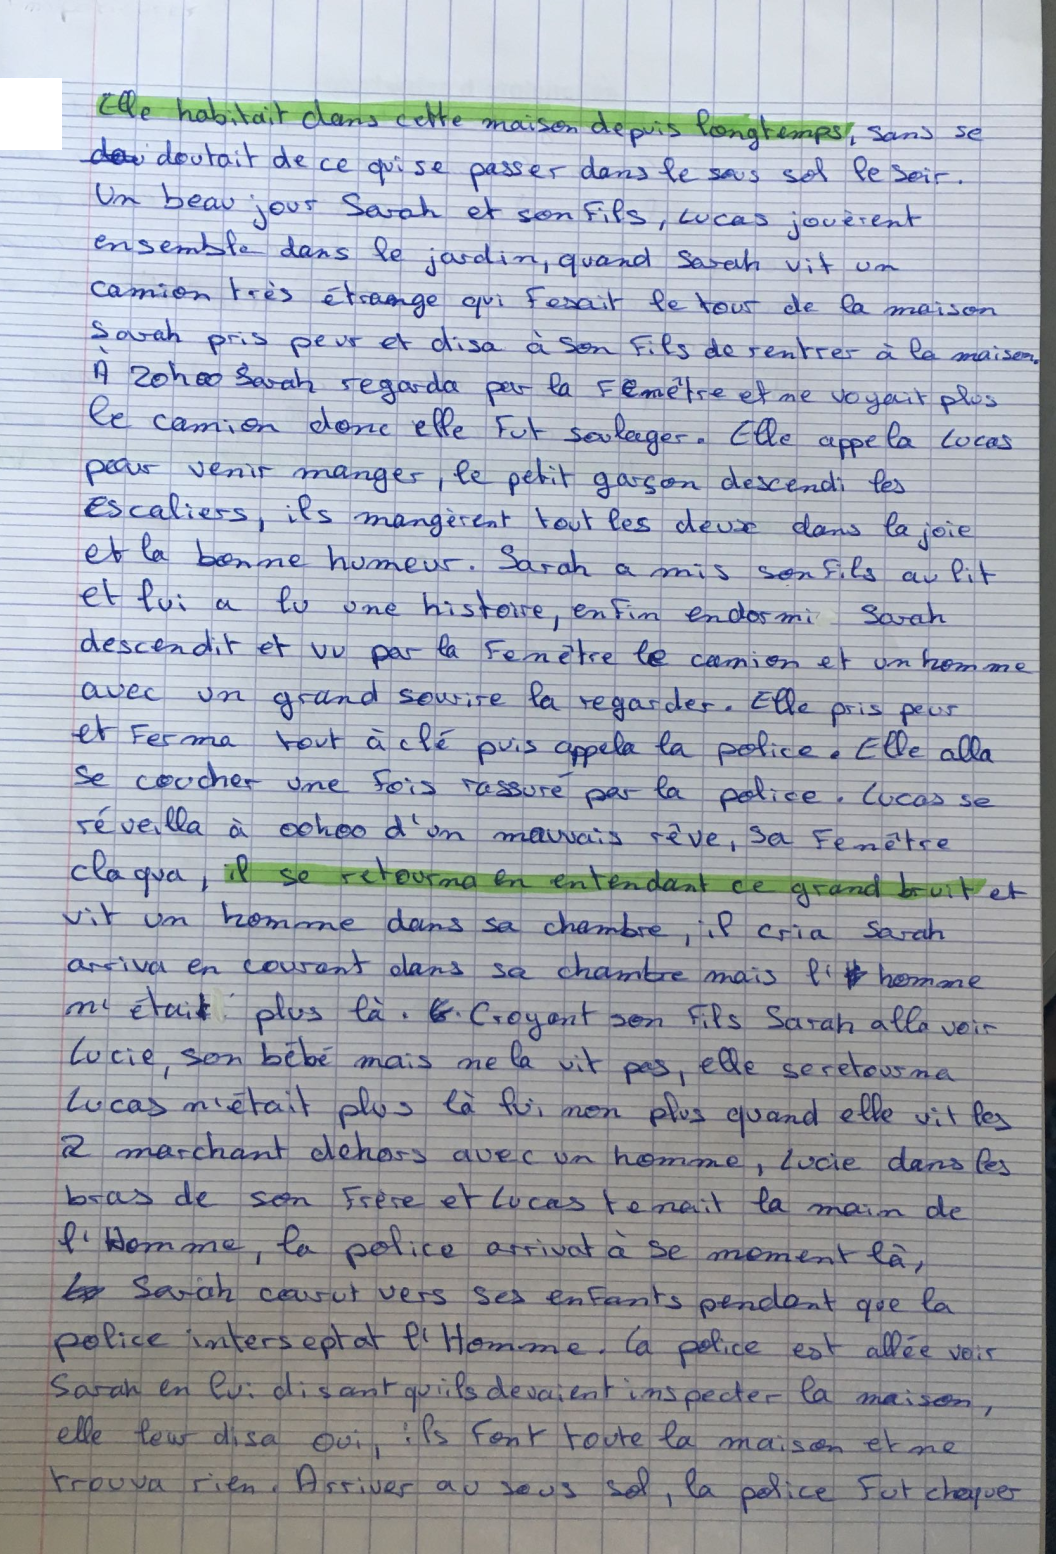 Elle habitait dans cette maison depuis longtemps, sans se
doutait de ce qui se passer dans le sous sol le soir.
Un beau jour Sarah et son fils, Lucas jouèrent
ensemble dans le jardin, quand Sarah vit un
camion très étrange qui fesait le tour de la maison
Sarah pris peur et disa à son fils de rentrer à la maison.
À 20h00 Sarah regarda par la fenêtre et ne voyait plus
le camion donc elle fut soulager. Elle appela Lucas
pour venir manger, le petit garson descendi les
escaliers, ils mangèrent tout les deux dans la joie
et la bonne humeur. Sarah a mis son fils au lit
et lui a lu une histoire, enfin endormi Sarah
descendit et vu par la fenêtre le camion et un homme
avec un grand sourire la regarder. Elle pris peur
et ferma tout à clé puis appela la police. Elle alla
se coucher une fois rassuré par la police. Lucas se
réveilla à 00h00 d'un mauvais rêve, sa fenêtre
claqua, il se retourna en entendant ce grand bruit et
vit un homme dans sa chambre, il cria Sarah
arriva en courant dans sa chambre mais l'homme
n'était plus là. Croyant son fils Sarah alla voir
Lucie, son bébé mais ne la vit pas, elle se retourna
Lucas n'était plus là lui non plus quand elle vit les
2 marchant dehors avec un homme, Lucie dans les
bras de son frère et Lucas tenait la main de
l'Homme, la police arrivat à se moment là,
Sarah courut vers ses enfants pendant que la
police interseptat l'Homme. La police est allée voir
Sarah en lui disant qu'ils devaient inspecter la maison,
elle leur disa oui, ils font toute la maison et ne
trouva rien. Arriver au sous sol, la police fut choquer